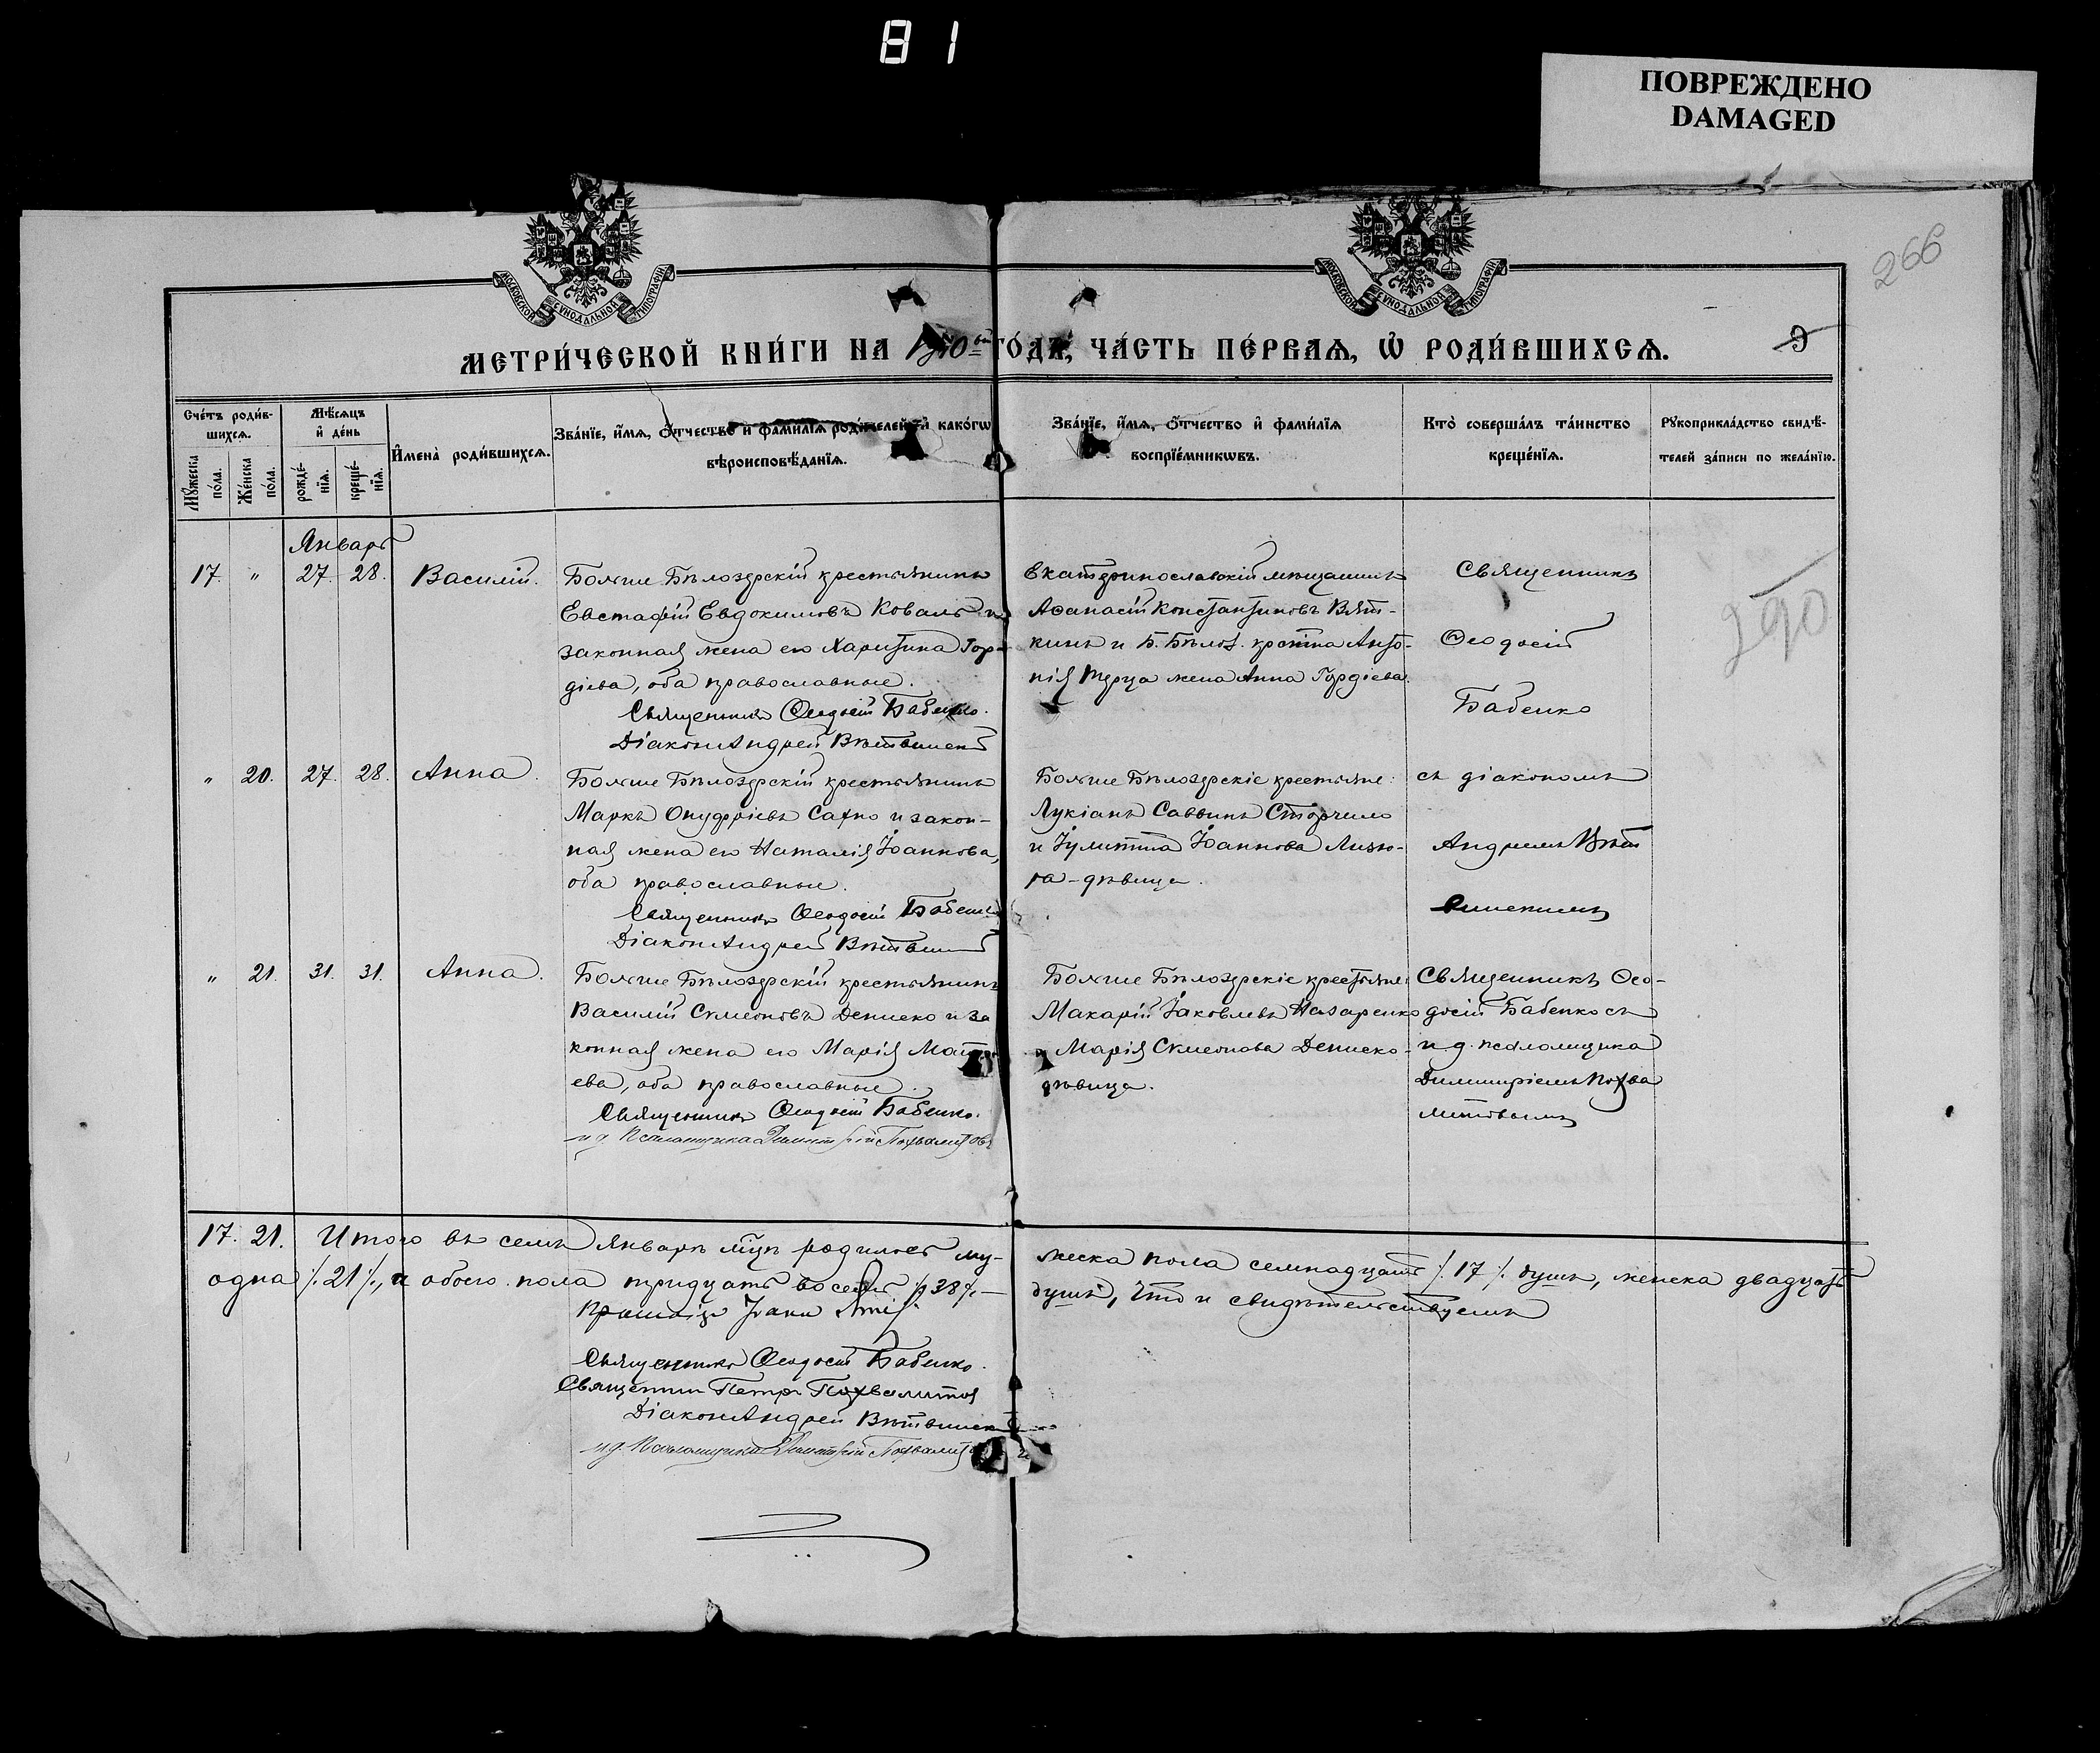 81
ПОВРЕЖДЕНО
DAMAGED
266
МОСКОВСКОЙ СѴНОДАЛЬНОЙ ТИПОГРАФІИ
МОСКОВСКОЙ СѴНОДАЛЬНОЙ ТИПОГРАФІИ
МЕТРИ́ЧЕСКОЙ КНИ́ГИ НА 1910ый ГО́ДЪ, ЧА́СТЬ ПЕ́РВАѦ, Ѡ҆ РОДИ́ВШИХСѦ.
9
Сче́тъ роди́вшихсѧ.
Мꙋ́жеска по́ла.
Же́нска по́ла.
Мѣ́сѧцъ и҆ де́нь
рожде́нїѧ.
креще́нїѧ.
И҆мена̀ роди́вшихсѧ.
Зва́нїе, и҆́мѧ, ѻ҆́тчество и҆ фами́лїѧ роди́телей, и҆ како́гѡ вѣроисповѣ́данїѧ.
Зва́нїе, и҆́мѧ, ѻ҆́тчество и҆ фами́лїѧ воспрїе́мникѡвъ.
Кто̀ соверша́лъ та́инство креще́нїѧ.
Рꙋкоприкла́дство свидѣ́телей за́писи по жела́нїю.
Январь
17. " 27. 28. Василій.
Больше Бѣлозерскій крестьянинъ
Евстафій Евдокимовъ Коваль и
законная жена его Харитина Гор-
діева, оба православные.
Священникъ Ѳеодосій Бабенко.
Діаконъ Андрей Вѣтвинскій
Екатеринославскій мѣщанинъ
Аѳанасій Константиновъ Вят-
кинъ и Б. Бѣлоз. кресткина Анто-
нія жена Анна Гордіева.
Священникъ
Ѳеодосій
Бабенко
290
" 20. 27. 28. Анна.
Больше Бѣлозерскій крестьянинъ
Маркъ Онуфріевъ Сахно и закон-
ная жена его Наталія Іоаннова,
оба православные.
Священникъ Ѳеодосій Бабенко
Діаконъ Андрей Вѣтвинскій
Больше Бѣлозерскіе крестьяне:
Лукіанъ Саввинъ Сторчило
и Іулитта Іоаннова Лизо-
га-дѣвица.
съ діакономъ
Андреемъ Вѣт
винскимъ
" 21. 31. 31. Анна.
Больше Бѣлозерскій крестьянинъ
Василій Симеоновъ Денисеко и за
конная жена его Марія Матѳ
ева, оба православные.
Священникъ Ѳеодосій Бабенко.
и д Псаломщика Димитрій Похвалитовъ
Больше Бѣлозерскіе крестьяне:
Макарій Іаковлевъ Назаренко
и Марія Симеонова Денисеко-
дѣвица.
Священникъ Ѳео-
досій Бабенко съ
и.д. псаломщика
Димитріемъ Похва
литовымъ
17. 21. Итого въ семъ Январѣ м-цѣ родилось му-жеска пола семнадцать /. 17 /. душъ, женска двадцать
одна /. 21 /., и обоего пола тридцать восемь /. 38 /.— душъ, Что и свидѣтельствуемъ
Іоаннъ
Священникъ Ѳеодосій Бабенко.
Священник Петръ Похвалитов
Діаконъ Андрей Вѣтвинскій
и д. Псаломщика Димитрій Похвалитовъ